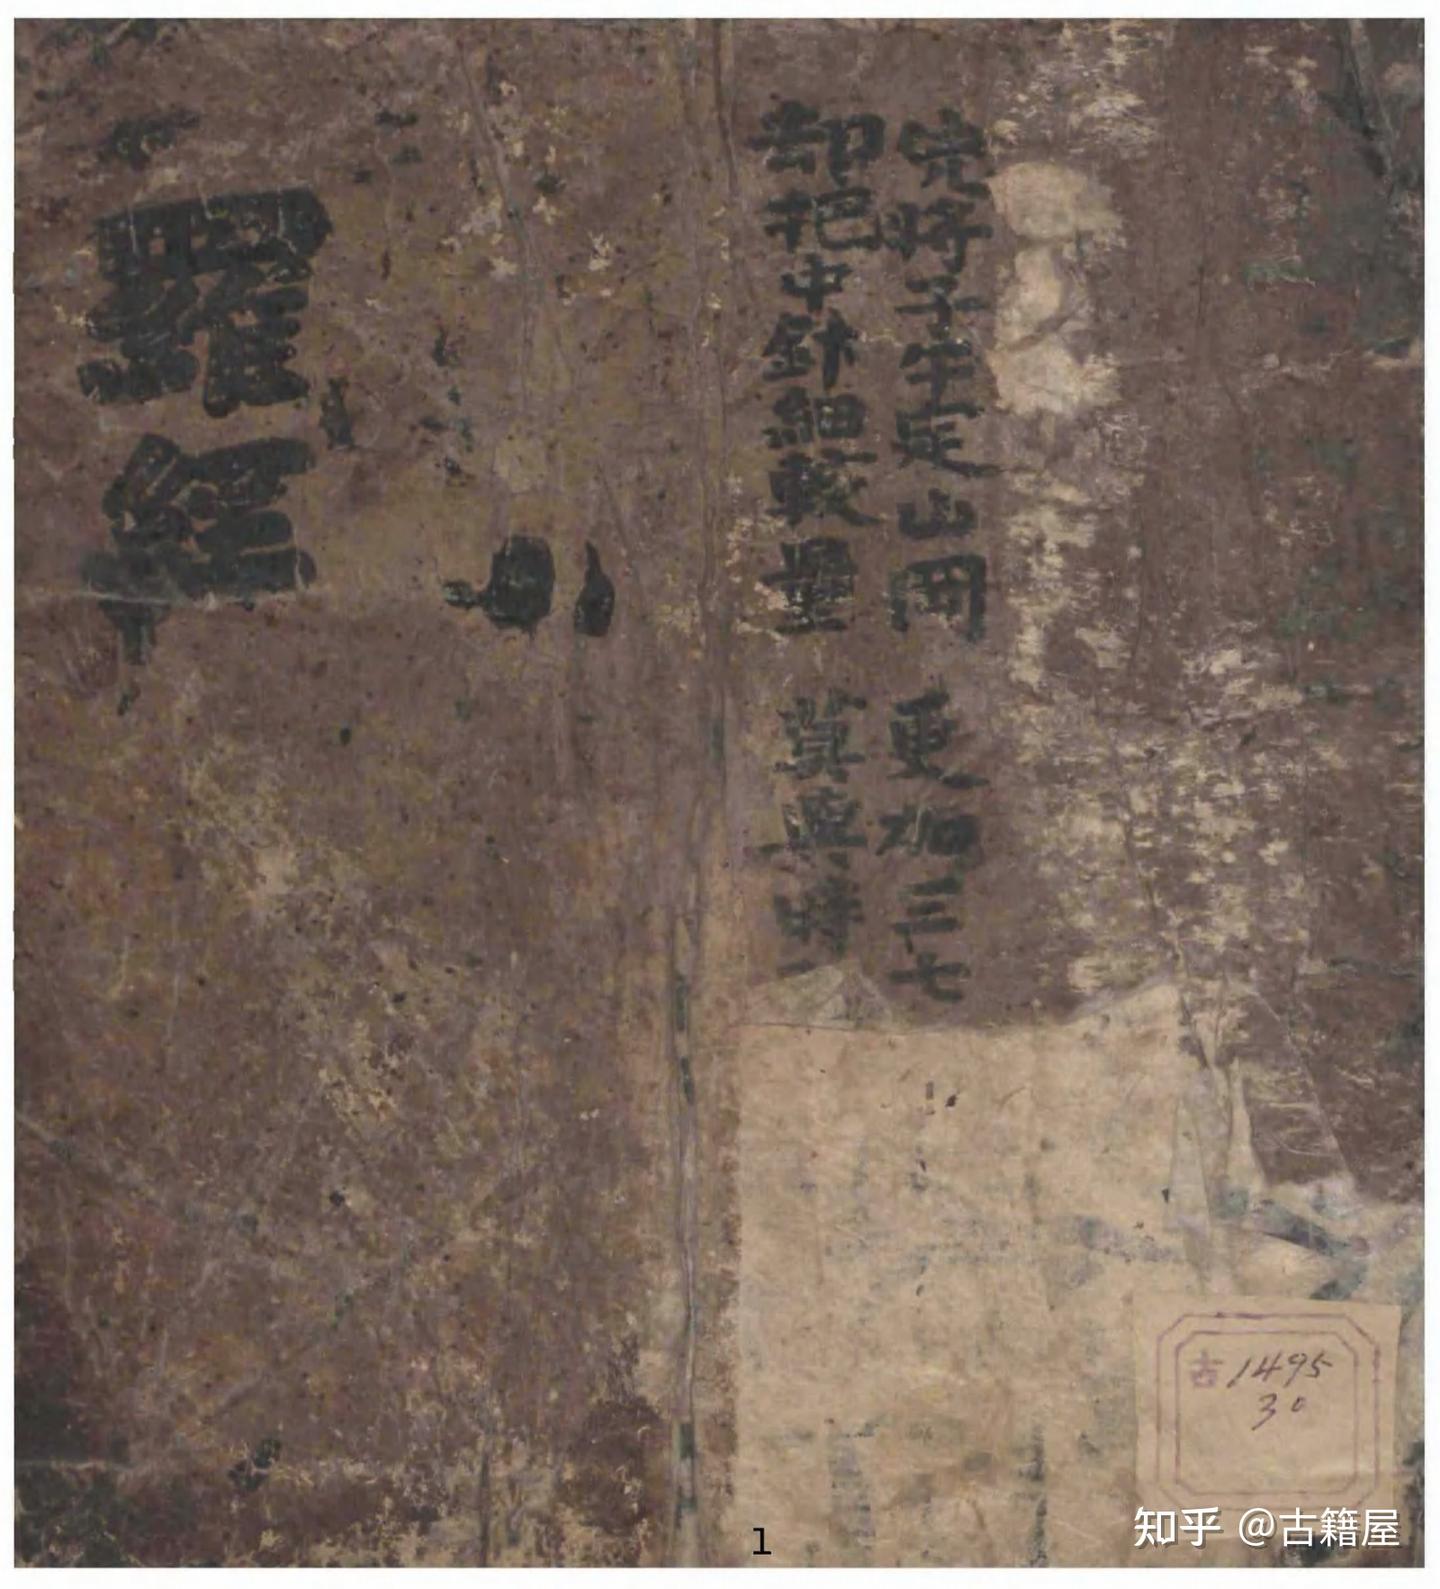 先將子午定山岡 更加三七
却把中針細較量 莫與時
羅經
古1495
30
1
知乎 @古籍屋